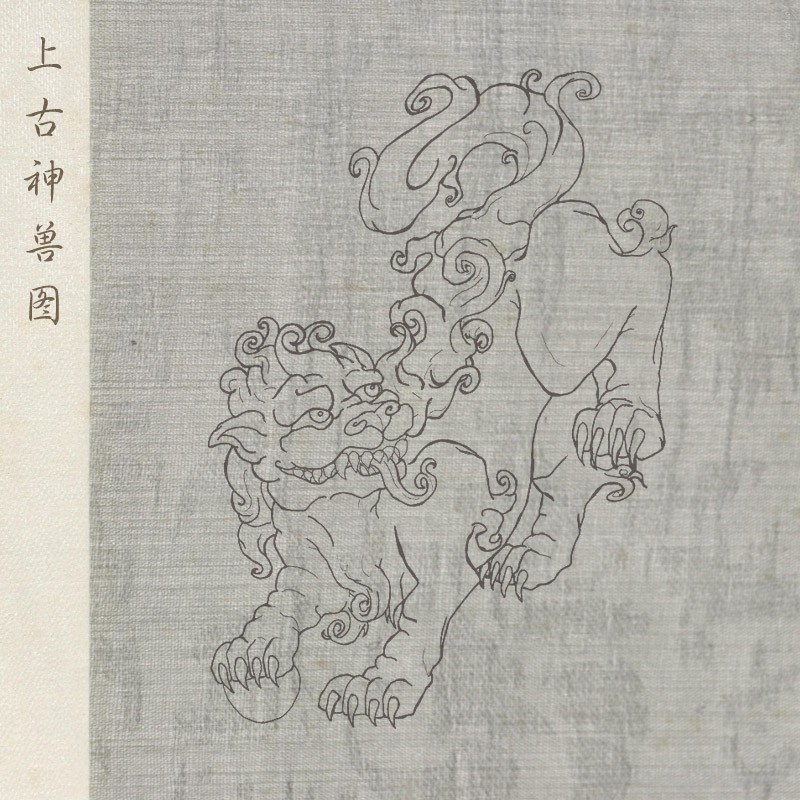 上古神兽图